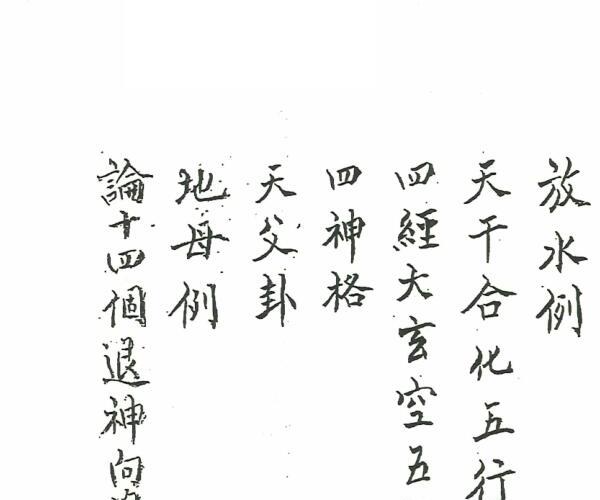 放水例
天干合化五行
四經大玄空五
四神格
天父卦
地母例
論十四個退神向